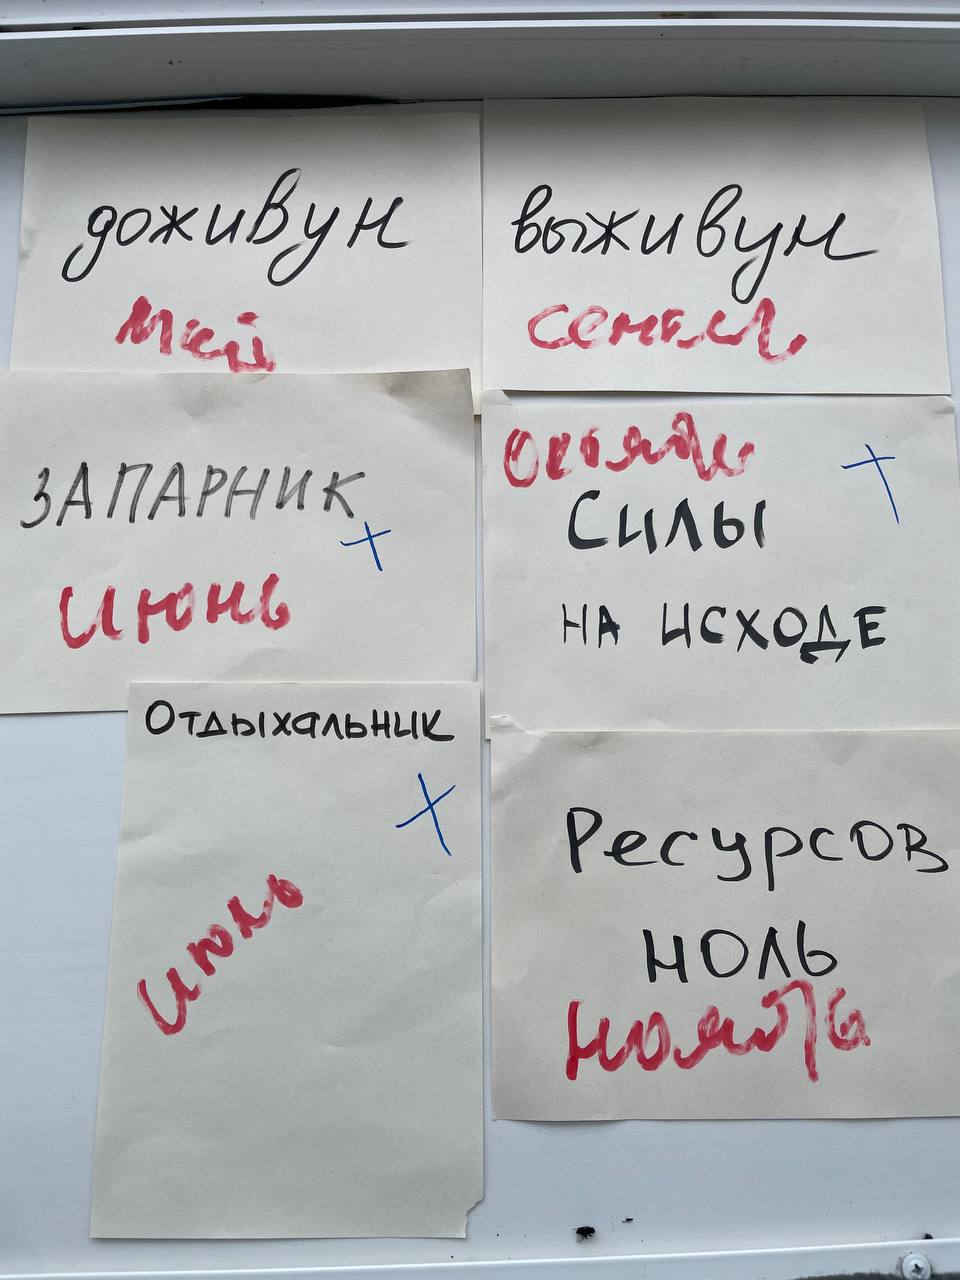 доживун
май
выживун
ЗАПАРНИК
июнь
СИЛЫ
НА ИСХОДЕ
Отдыхальник
июль
Ресурсов
ноль
ноябрь